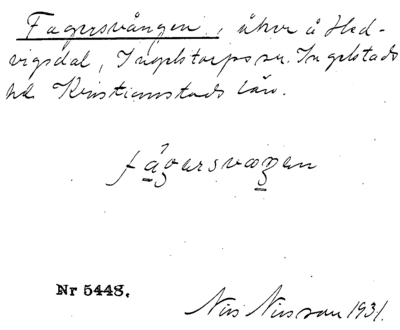 Fagersvången, åker å Hed-
vigsdal, Ingelstorps sn. Ingelstads
hd Kristianstads län.
fågersvaŋen
Nr 5448.
Nils Nilsson 1931.